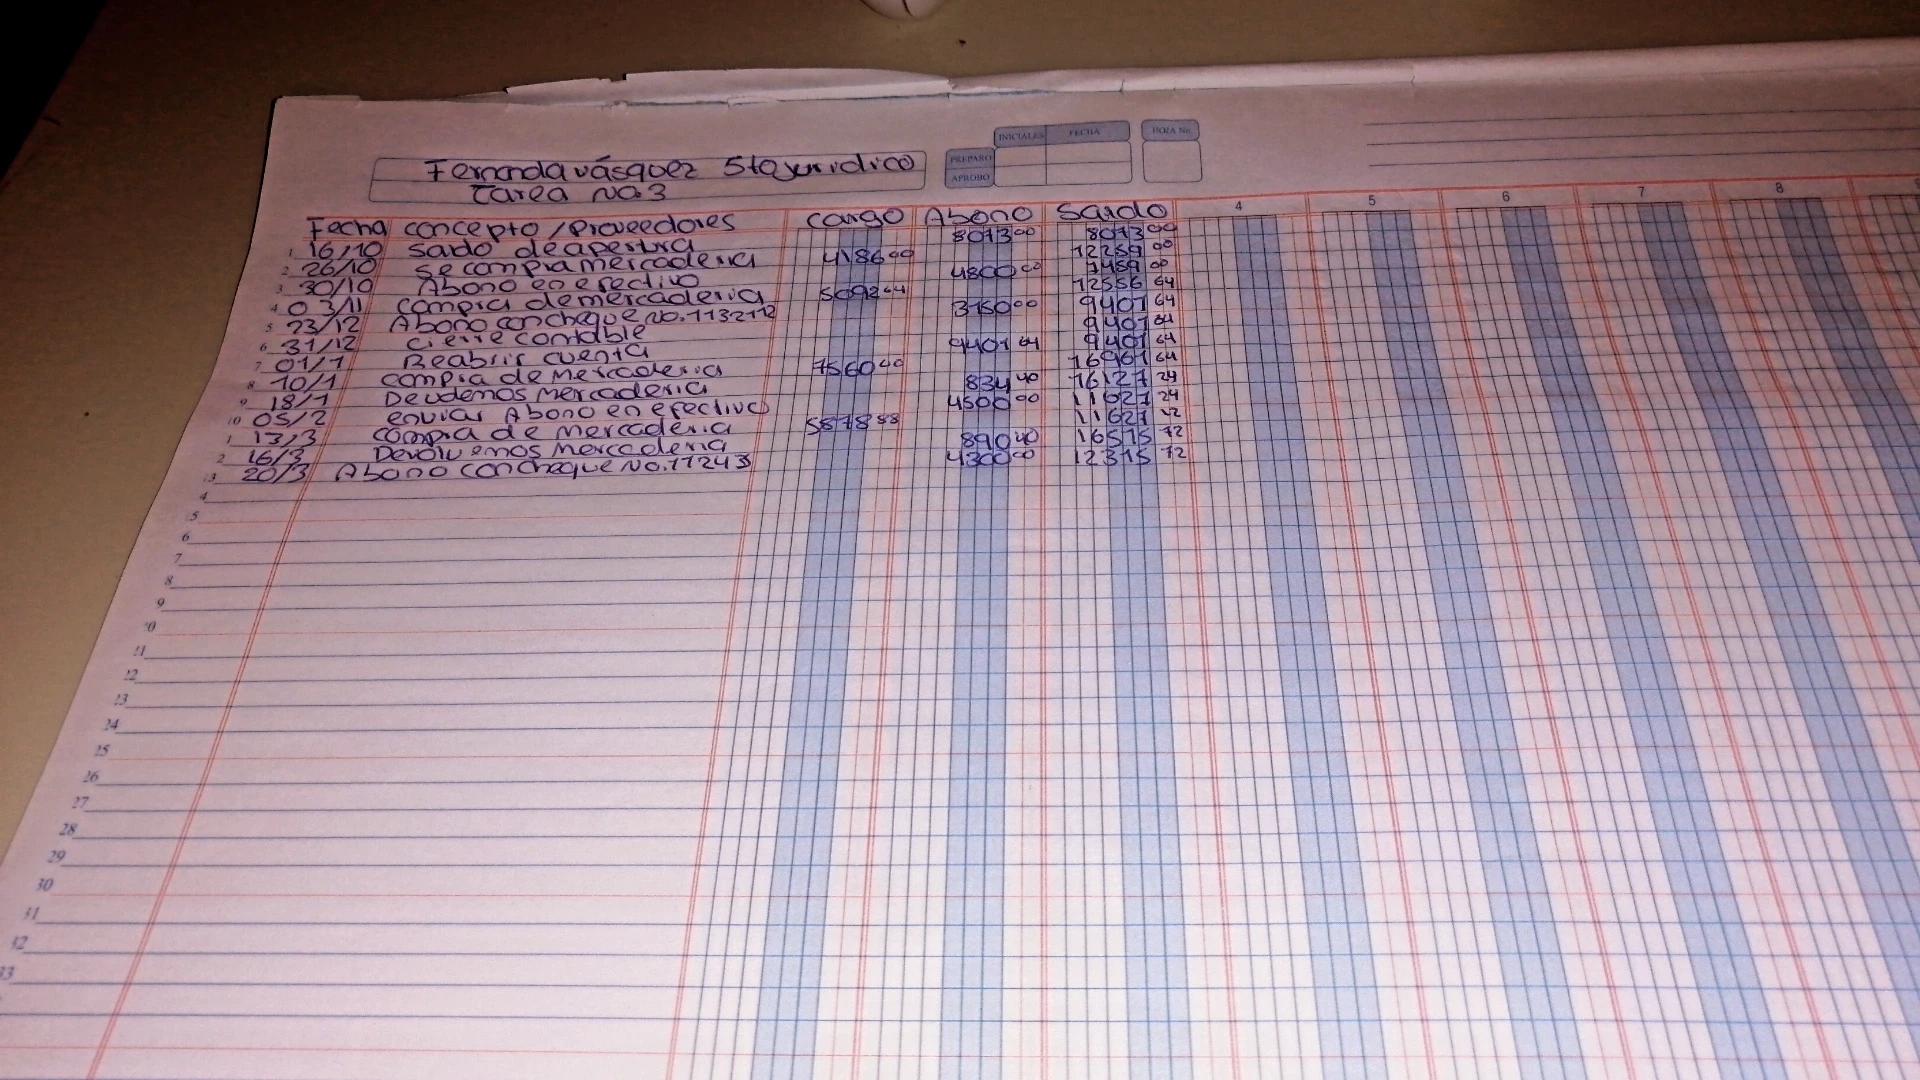 INICIALES FECHA HOJA No.
PREPARO
APROBO
Fernanda vásquez 5to juridico
Tarea No.3
4 5 6 7 8
Fecha concepto / Proveedores cargo Abono Saldo
1 16/10 Saldo de apertura 8073 00 8073 00
2 26/10 se compra mercaderia 4186 00 12259 00
3 30/10 Abono en efectivo 4800 00 7459 00
4 03/11 compra de mercaderia 5092 64 12556 64
5 23/12 Abono con cheque No.1132112 3150 00 9401 64
6 31/12 cierre contable 9401 64
7 01/1 Reabrir cuenta 9401 64 9401 64
8 10/1 compra de mercaderia 7560 00 16961 64
9 18/1 Devdemos mercaderia 834 40 16127 24
10 05/2 enviar Abono en efectivo 4500 00 11627 24
1 13/3 compra de mercaderia 5878 88 11627
2 16/3 Devolvemos mercaderia 890 40 16515 72
13 20/3 Abono con cheque No.11243 4300 00 12315 72
4
5
6
7
8
9
20
21
22
23
24
25
26
27
28
29
30
31
32
33